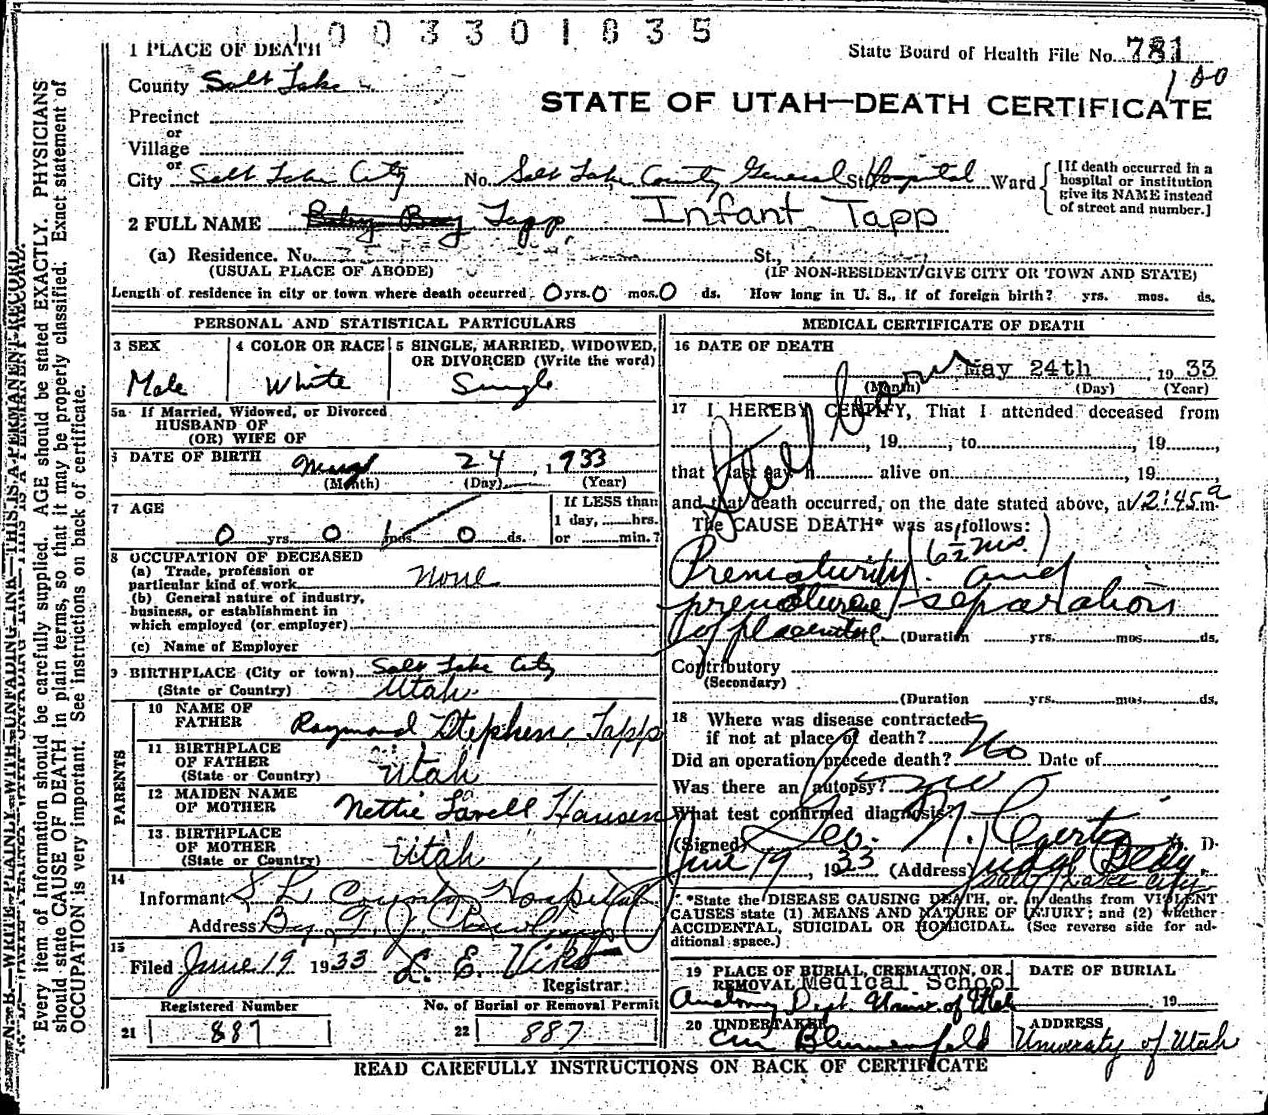 1003301835
1 PLACE OF DEATH
State Board of Health File No. 781
100
County Salt Lake
STATE OF UTAH—DEATH CERTIFICATE
Precinct
or
Village
or
City Salt Lake City No. Salt Lake County General St. Hospital Ward
[If death occurred in a
hospital or institution
give its NAME instead
of street and number.]
2 FULL NAME Baby Boy Tapp, Infant Tapp
(a) Residence. No. St.,
(USUAL PLACE OF ABODE) (IF NON-RESIDENT/GIVE CITY OR TOWN AND STATE)
Length of residence in city or town where death occurred 0 yrs. 0 mos. 0 ds. How long in U. S., if of foreign birth? yrs. mos. ds.
PERSONAL AND STATISTICAL PARTICULARS
3 SEX
Male
4 COLOR OR RACE
White
5 SINGLE, MARRIED, WIDOWED,
OR DIVORCED (Write the word)
Single
5a If Married, Widowed, or Divorced
HUSBAND OF
(OR) WIFE OF
6 DATE OF BIRTH May 24, 1933
(Month) (Day) (Year)
7 AGE
0 yrs. 0 mos. 0 ds.
If LESS than
1 day, hrs.
or min.?
8 OCCUPATION OF DECEASED
(a) Trade, profession or
particular kind of work None
(b) General nature of industry,
business, or establishment in
which employed (or employer)
(c) Name of Employer
9 BIRTHPLACE (City or town) Salt Lake City
(State or Country) Utah
PARENTS
10 NAME OF
FATHER Raymond Stephen Tapp
11 BIRTHPLACE
OF FATHER
(State or Country) Utah
12 MAIDEN NAME
OF MOTHER Nettie Lavell Hansen
13 BIRTHPLACE
OF MOTHER
(State or Country) Utah
14
Informant S L County Hospital
Address By
15
Filed June 19 1933 L. E. Viko
Registrar
Registered Number
21 887
No. of Burial or Removal Permit
22 887
MEDICAL CERTIFICATE OF DEATH
16 DATE OF DEATH
May 24th, 1933
(Month) (Day) (Year)
Still born
17 I HEREBY CERTIFY, That I attended deceased from
, 19 , to , 19
that I last saw h alive on , 19
and that death occurred, on the date stated above, at 12:45 a m.
The CAUSE DEATH* was as follows:
Prematurity (6½ mo.) and
premature separation
of placenta (Duration yrs. mos. ds.
Contributory
(Secondary)
(Duration yrs. mos. ds.
18 Where was disease contracted
if not at place of death?
Did an operation precede death? No Date of
Was there an autopsy? no
What test confirmed diagnosis?
(Signed) Geo. N. M. D.
June 19, 1933 (Address) Judge Bldg.
Salt Lake City
*State the DISEASE CAUSING DEATH, or, in deaths from VIOLENT
CAUSES state (1) MEANS AND NATURE OF INJURY; and (2) whether
ACCIDENTAL, SUICIDAL OR HOMICIDAL. (See reverse side for ad-
ditional space.)
19 PLACE OF BURIAL, CREMATION, OR
REMOVAL Medical School
Anatomy Dept. Univ. of Utah
DATE OF BURIAL
19
20 UNDERTAKER
Blumenfeld
ADDRESS
University of Utah
READ CAREFULLY INSTRUCTIONS ON BACK OF CERTIFICATE
N. B.—WRITE PLAINLY WITH UNFADING INK—THIS IS A PERMANENT RECORD.
Every item of information should be carefully supplied. AGE should be stated EXACTLY. PHYSICIANS
should state CAUSE OF DEATH in plain terms, so that it may be properly classified. Exact statement of
OCCUPATION is very important. See instructions on back of certificate.